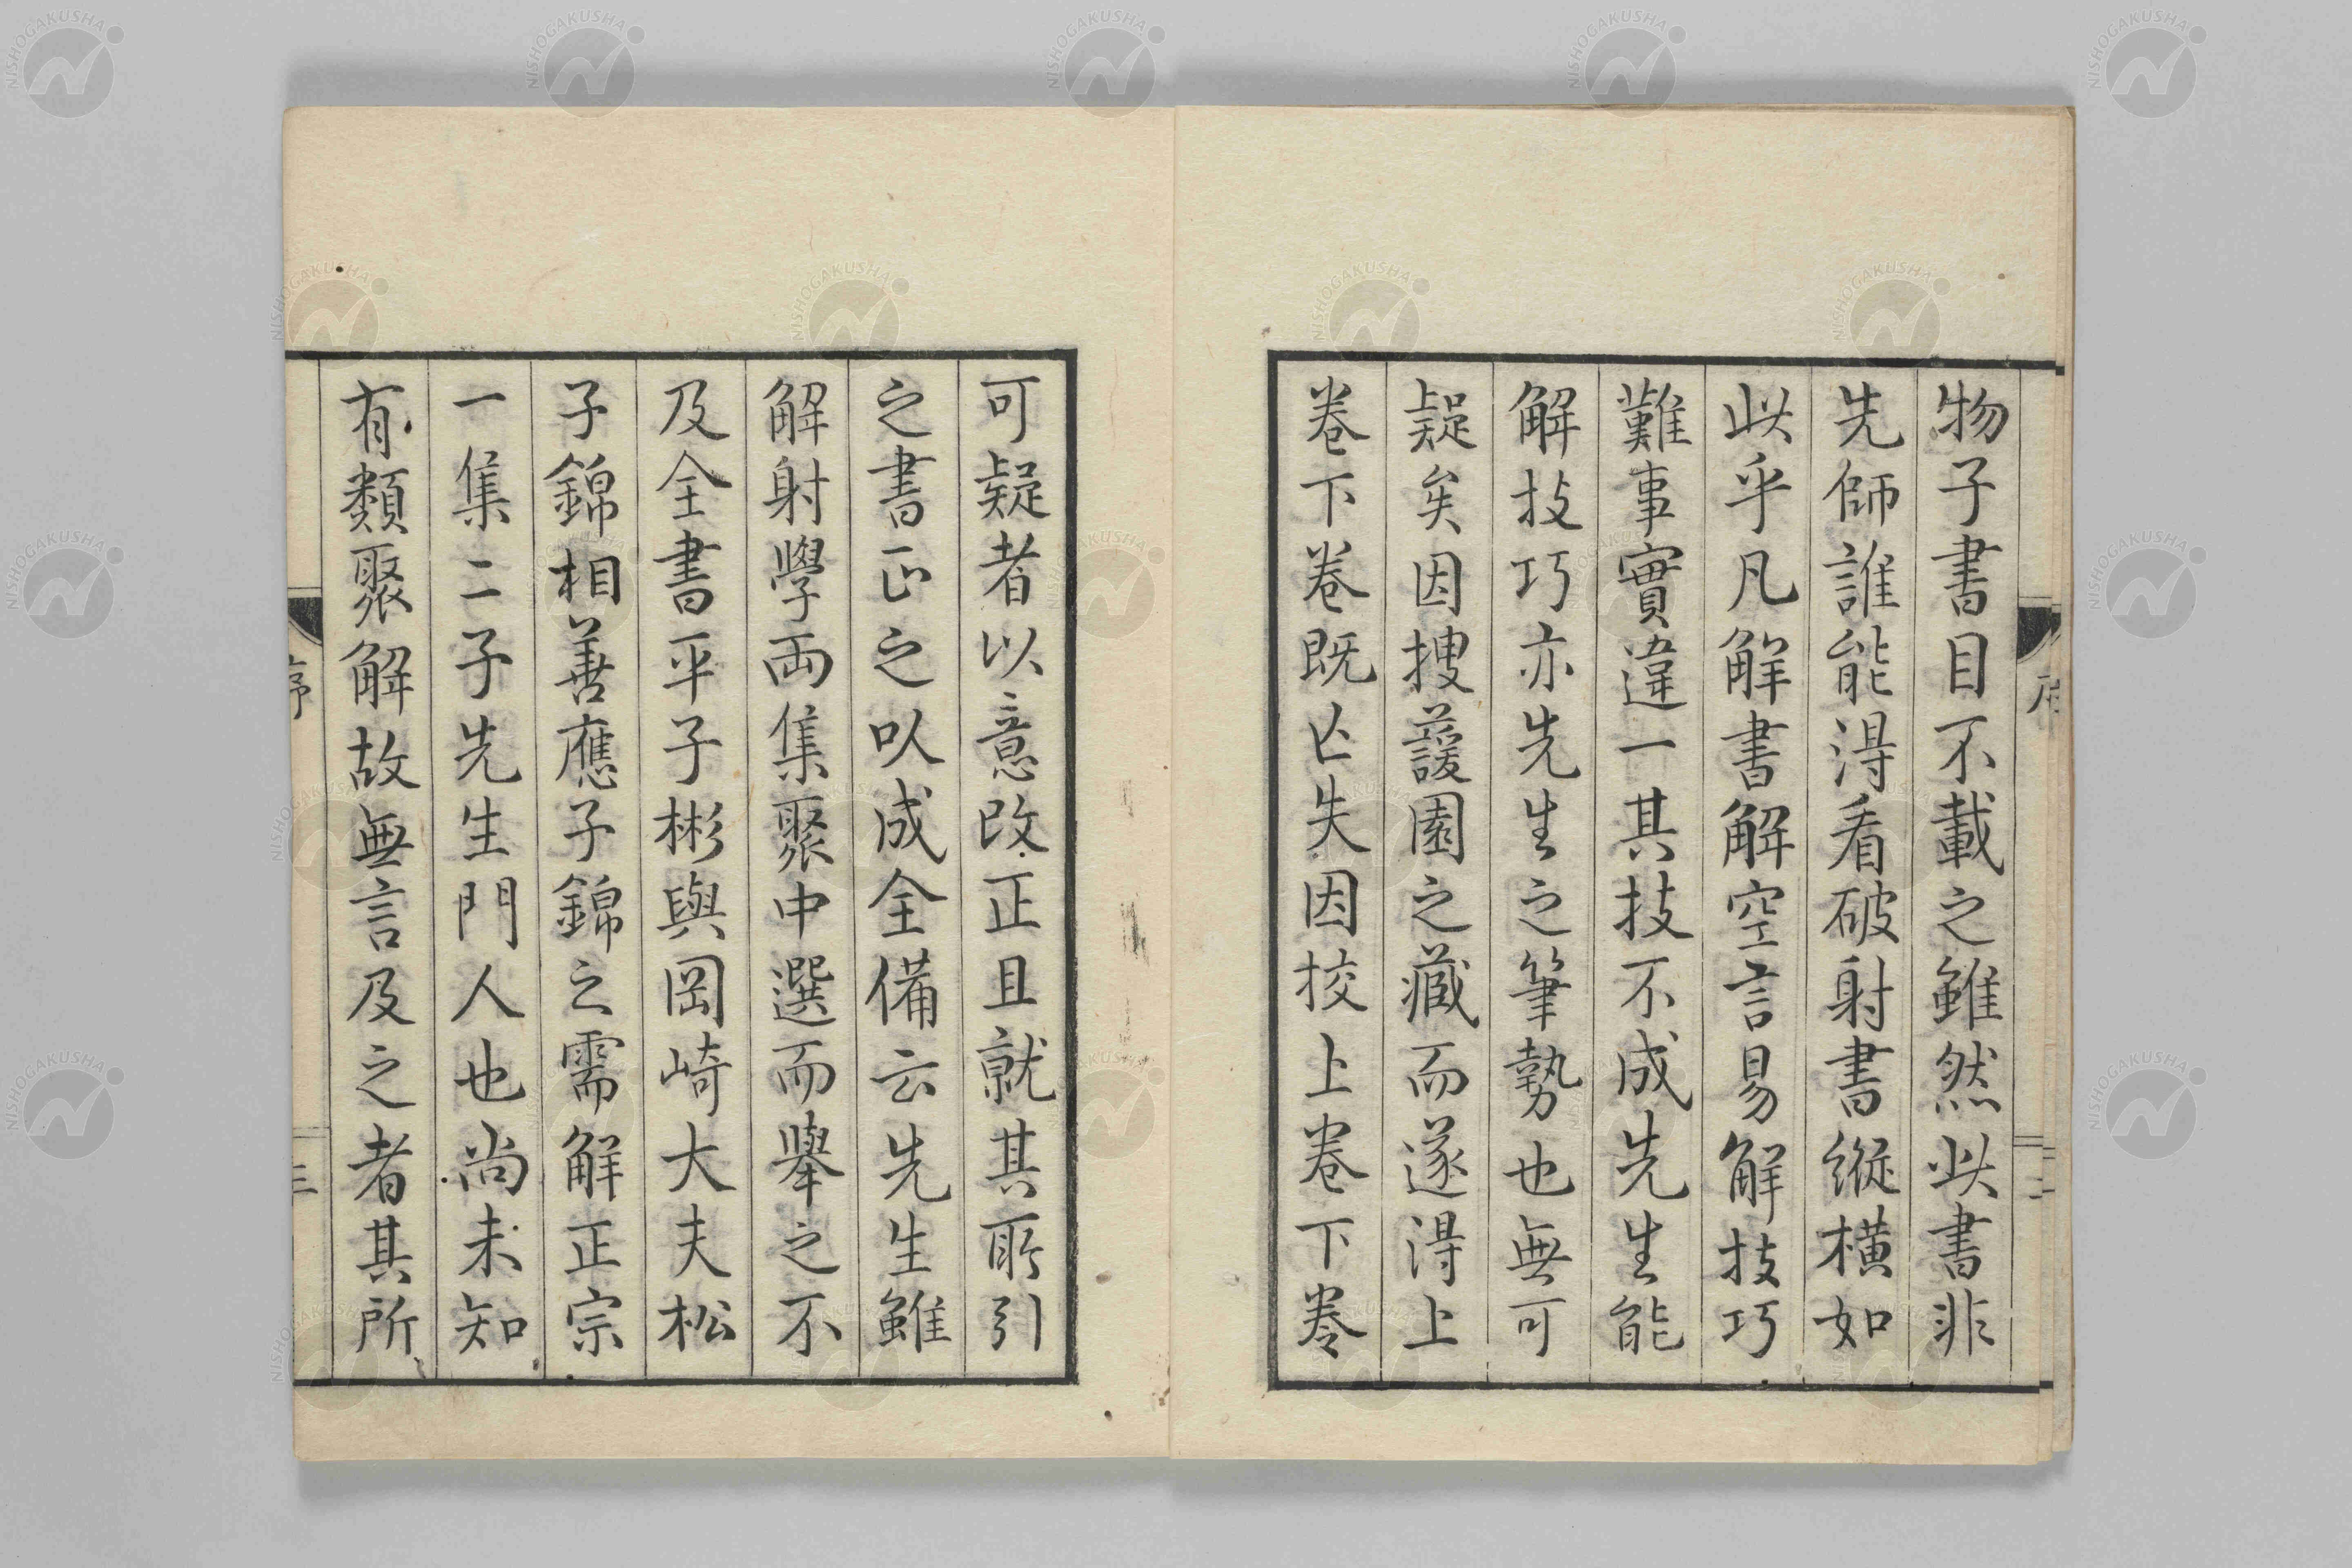 物子書目不載之雖然此書非
先師誰能淂看破射書縱橫如
此乎凡解書解空言易解技巧
難事實違一其技不成先生能
解技巧亦先生之筆勢也無可
疑矣因搜蘐園之藏而遂淂上
卷下卷既亡失因挍上卷下卷
可疑者以意改正且就其所引
之書正之以成全備云先生雖
解射學両集聚中選而舉之不
及全書平子彬與岡崎大夫松
子錦相善應子錦之需解正宗
一集二子先生門人也尚未知
有類聚解故無言及之者其所
序
三
NISHOGAKUSHA